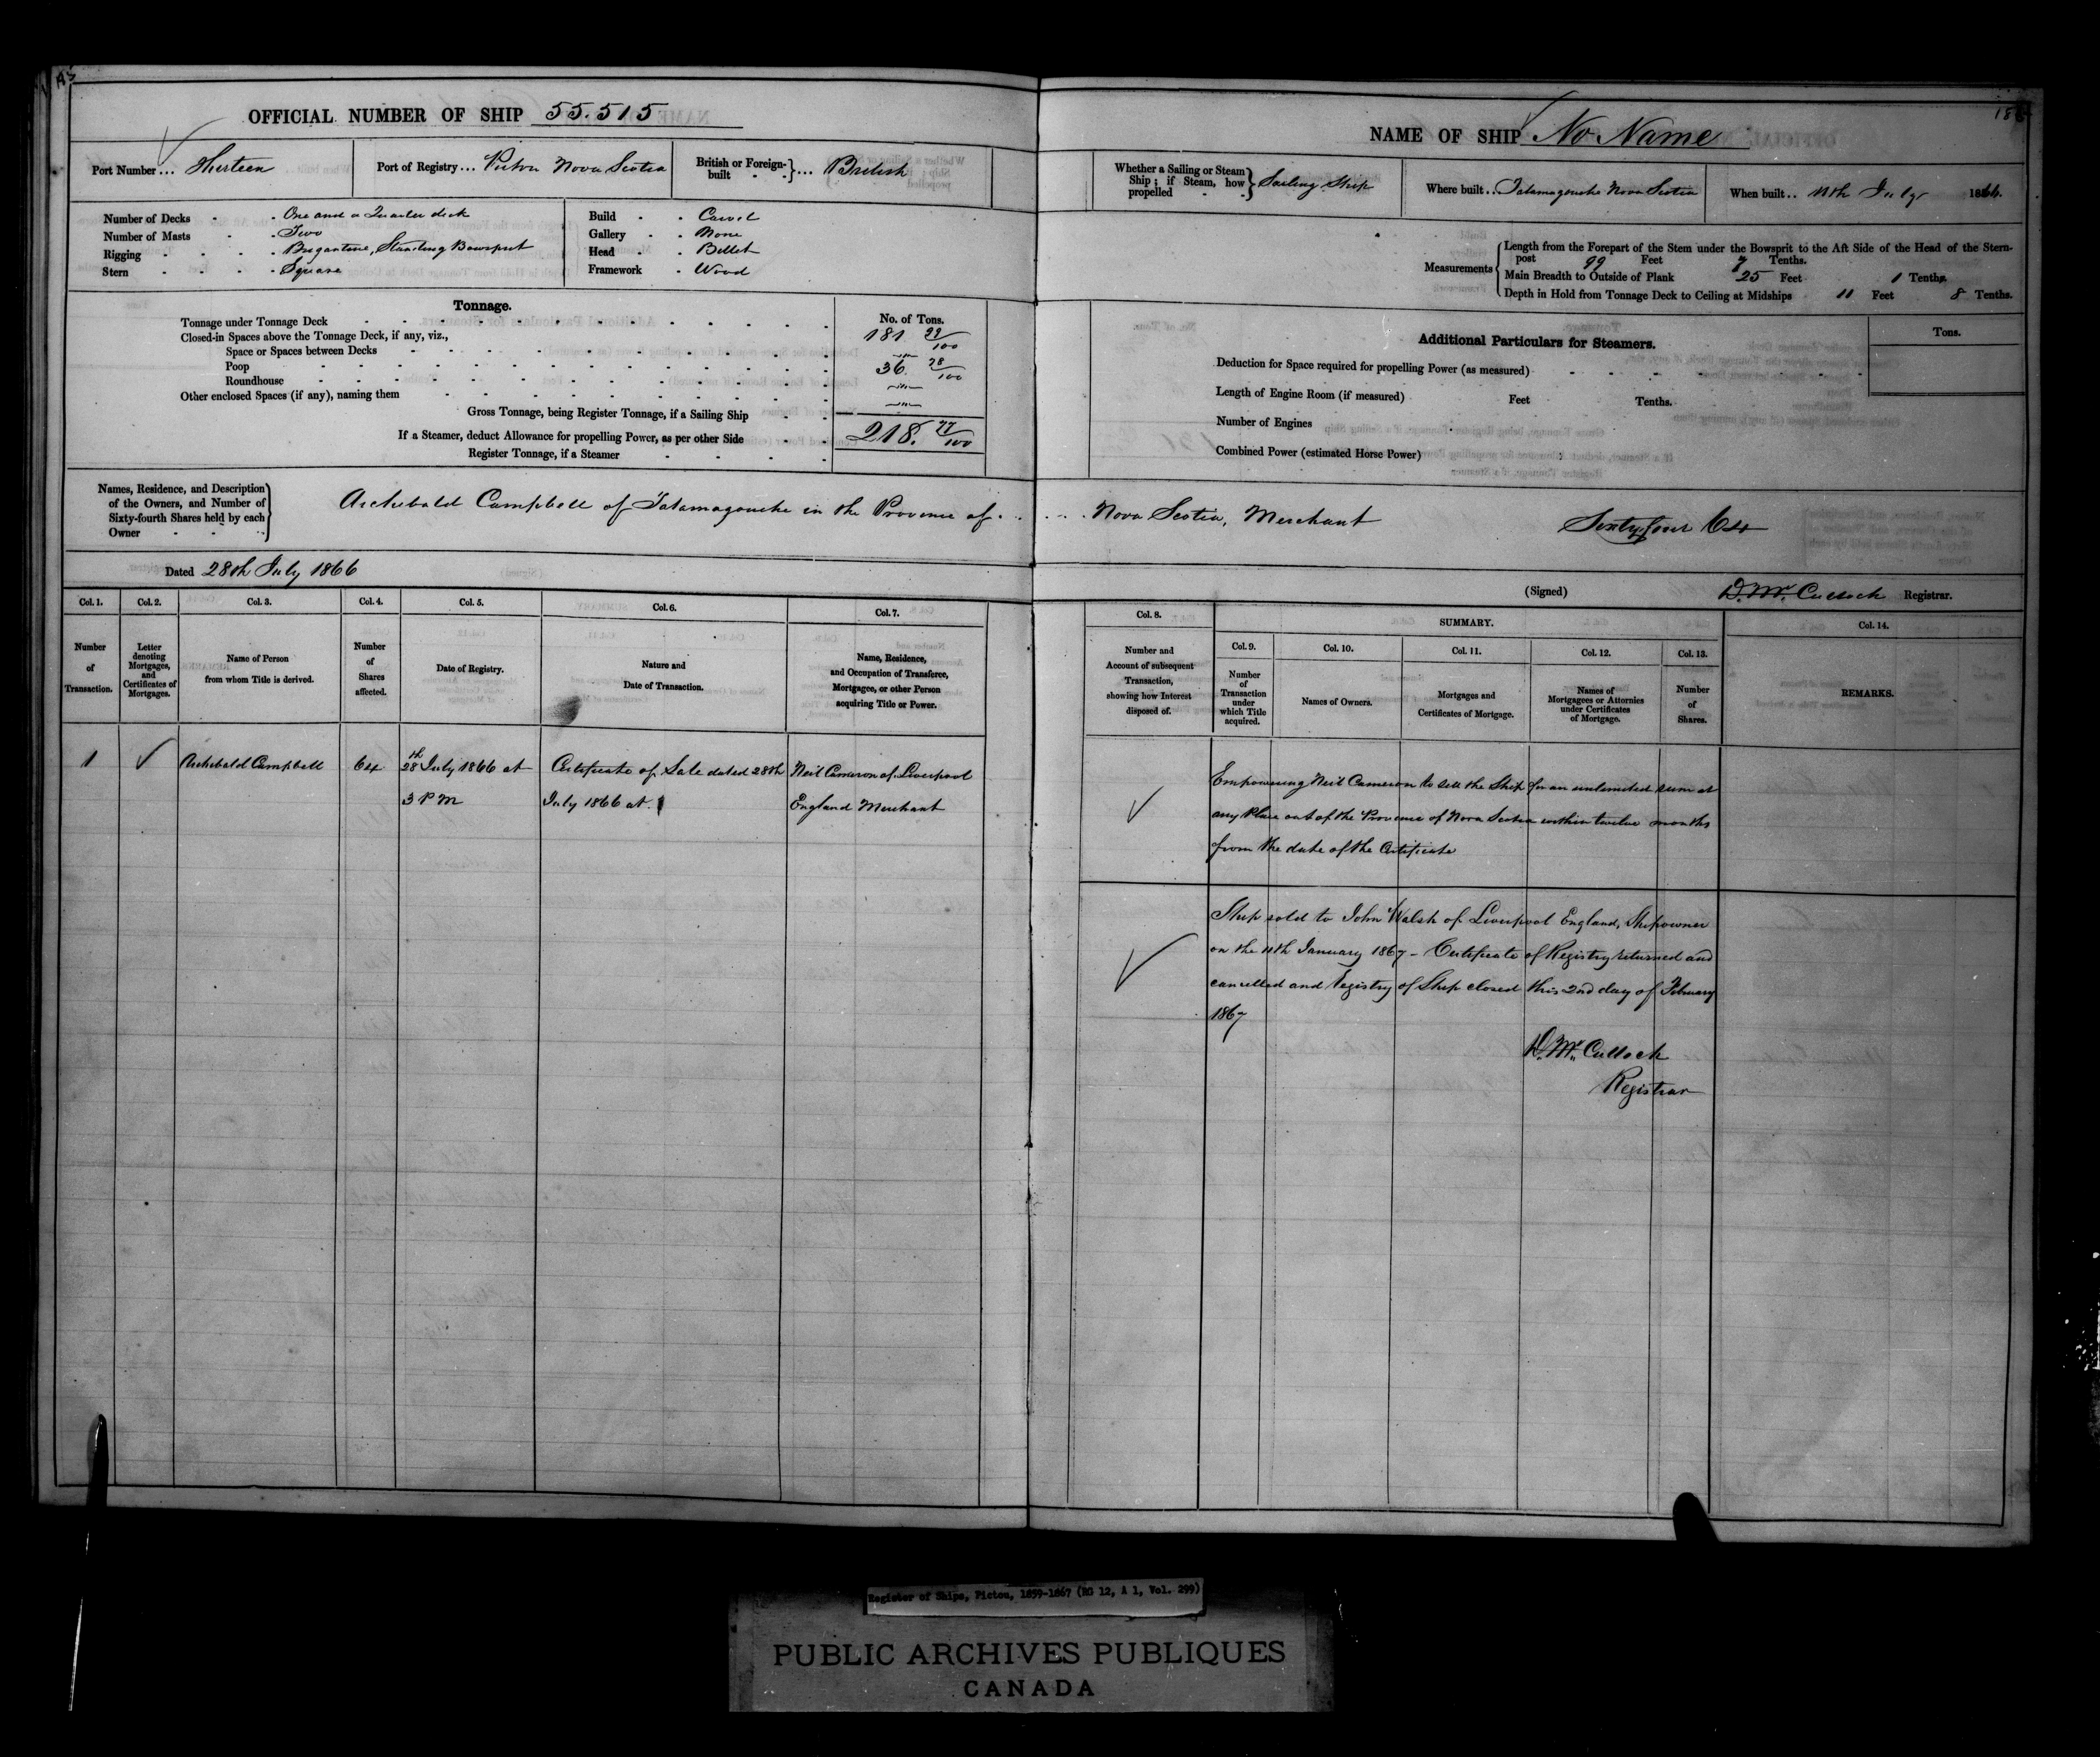 OFFICIAL NUMBER OF SHIP 55.515
Port Number ... Thirteen
Port of Registry ... Pictou Nova Scotia
British or Foreign-built } ... British
Number of Decks - - One and a Quarter deck
Number of Masts - - Two
Rigging - - - - Brigantine, Standing Bowsprit
Stern - - - - Square
Build - - Carvel
Gallery - - None
Head - - Billet
Framework - Wood
Tonnage.
No. of Tons.
Tonnage under Tonnage Deck 181
Closed-in Spaces above the Tonnage Deck, if any, viz.,
Space or Spaces between Decks
Poop 36.
Roundhouse
Other enclosed Spaces (if any), naming them
Gross Tonnage, being Register Tonnage, if a Sailing Ship 218. 77/100
If a Steamer, deduct Allowance for propelling Power, as per other Side
Register Tonnage, if a Steamer
NAME OF SHIP No Name
Whether a Sailing or Steam Ship; if Steam, how propelled } Sailing Ship
Where built .. Tatamagouche Nova Scotia
When built .. July 1866.
Measurements { Length from the Forepart of the Stem under the Bowsprit to the Aft Side of the Head of the Stern-
post 99 Feet 7 Tenths.
Main Breadth to Outside of Plank 25 Feet 1 Tenths
Depth in Hold from Tonnage Deck to Ceiling at Midships 11 Feet 8 Tenths.
Additional Particulars for Steamers.
Tons.
Deduction for Space required for propelling Power (as measured)
Length of Engine Room (if measured) Feet Tenths.
Number of Engines
Combined Power (estimated Horse Power)
Names, Residence, and Description
of the Owners, and Number of
Sixty-fourth Shares held by each
Owner
Archibald Campbell of Tatamagouche in the Province of . . . . . Nova Scotia, Merchant Sixty four 64
Dated 28th July 1866
(Signed) D. Mc. Culloch Registrar.
Col. 1. Col. 2. Col. 3. Col. 4. Col. 5. Col. 6. Col. 7.
Number of Transaction.
Letter denoting Mortgages, and Certificates of Mortgages.
Name of Person from whom Title is derived.
Number of Shares affected.
Date of Registry.
Nature and Date of Transaction.
Name, Residence, and Occupation of Transferee, Mortgagee, or other Person acquiring Title or Power.
Col. 8.
SUMMARY.
Col. 14.
Col. 9. Col. 10. Col. 11. Col. 12. Col. 13.
Number and Account of subsequent Transaction, showing how Interest disposed of.
Number of Transaction under which Title acquired.
Names of Owners.
Mortgages and Certificates of Mortgage.
Names of Mortgagees or Attornies under Certificates of Mortgage.
Number of Shares.
REMARKS.
1
Archibald Campbell
64
28th July 1866 at
3 P M
Certificate of Sale dated 28th
July 1866 at
Neil Cameron of Liverpool
England Merchant
Empowering Neil Cameron to sell the Ship for an unlimited sum at
any Place out of the Province of Nova Scotia within twelve months
from the date of the Certificate
Ship sold to John Walsh of Liverpool England, Shipowner
on the 11th January 1867 - Certificate of Registry returned and
cancelled and Registry of Ship closed this 2nd day of February
1867
D. Mc. Culloch
Registrar
Register of Ships, Pictou, 1859-1867 (RG 12, A 1, Vol. 299)
PUBLIC ARCHIVES PUBLIQUES
CANADA